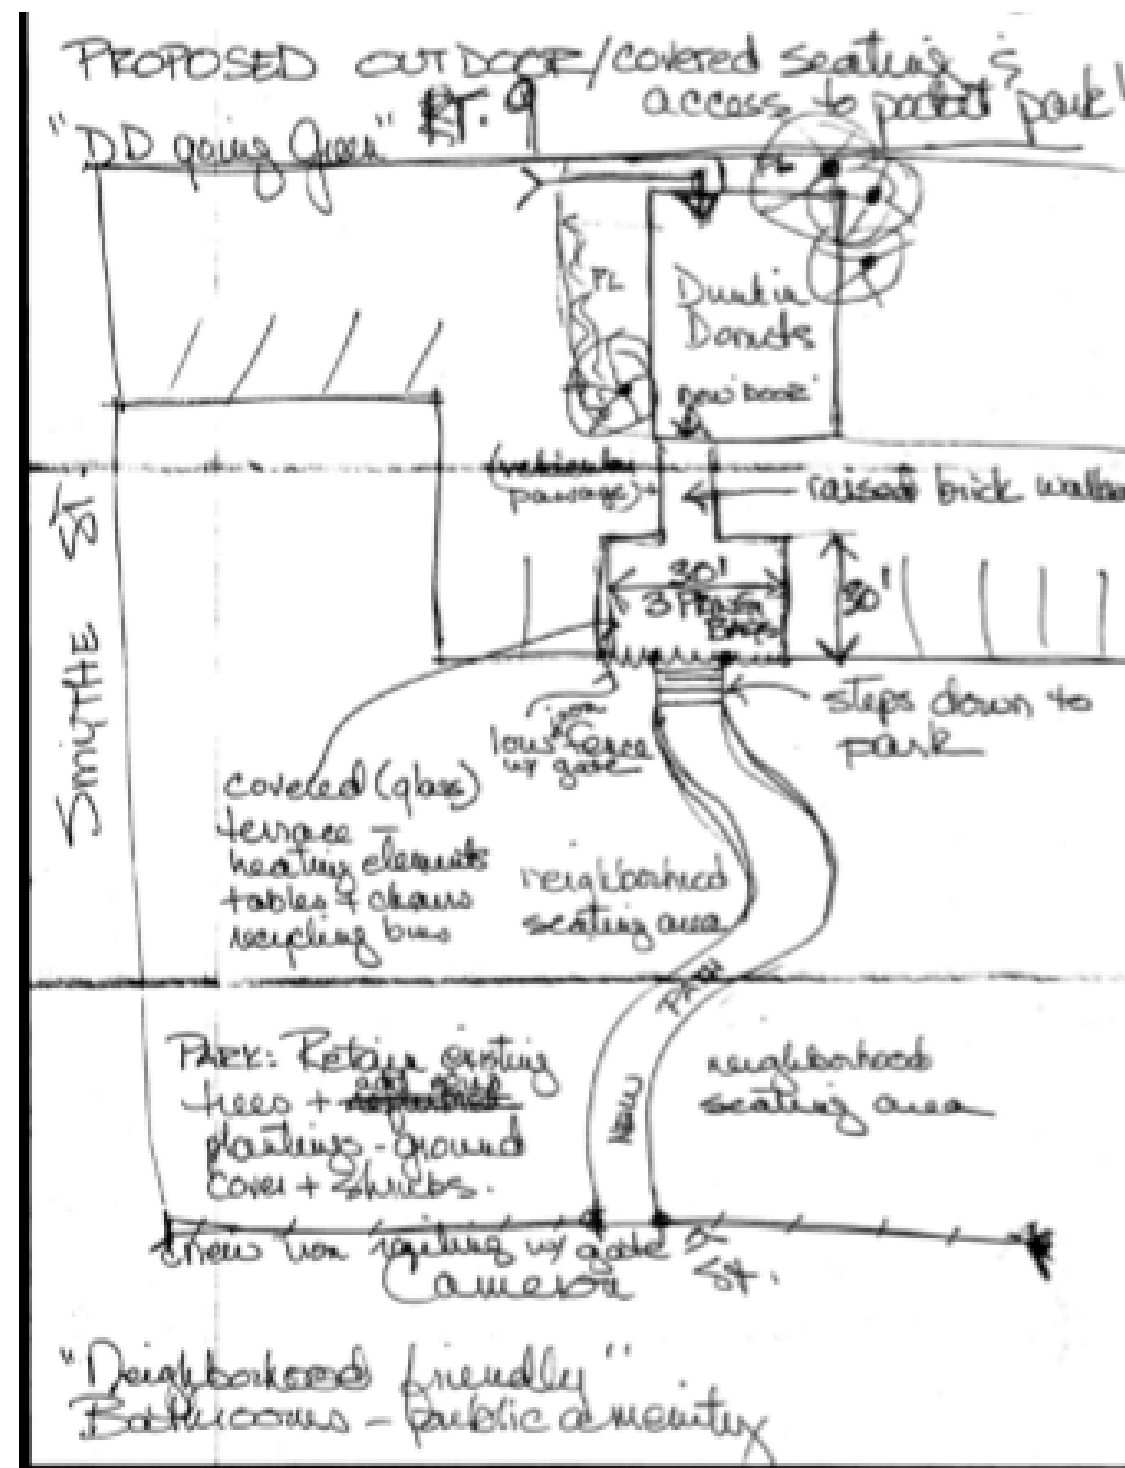 PROPOSED OUTDOOR/covered seating &
access to pocket park!
"DD going Green" RT. 9
PL
PL
Dunkin
Donuts
new 'door'
(vehicular
passage)
raised brick
30'
30'
3
SMYTHE ST.
iron
low fence
w/ gate
steps down to
park
covered (glass)
terrace –
heating elements
tables & chairs
recycling bins
neighborhood
seating area
NEW PATH
PARK: Retain existing
trees +
plantings - ground
cover + shrubs.
neighborhood
seating area
new iron railing w/ gate
Cameron St.
"Neighborhood friendly"
Bathrooms – public amenity